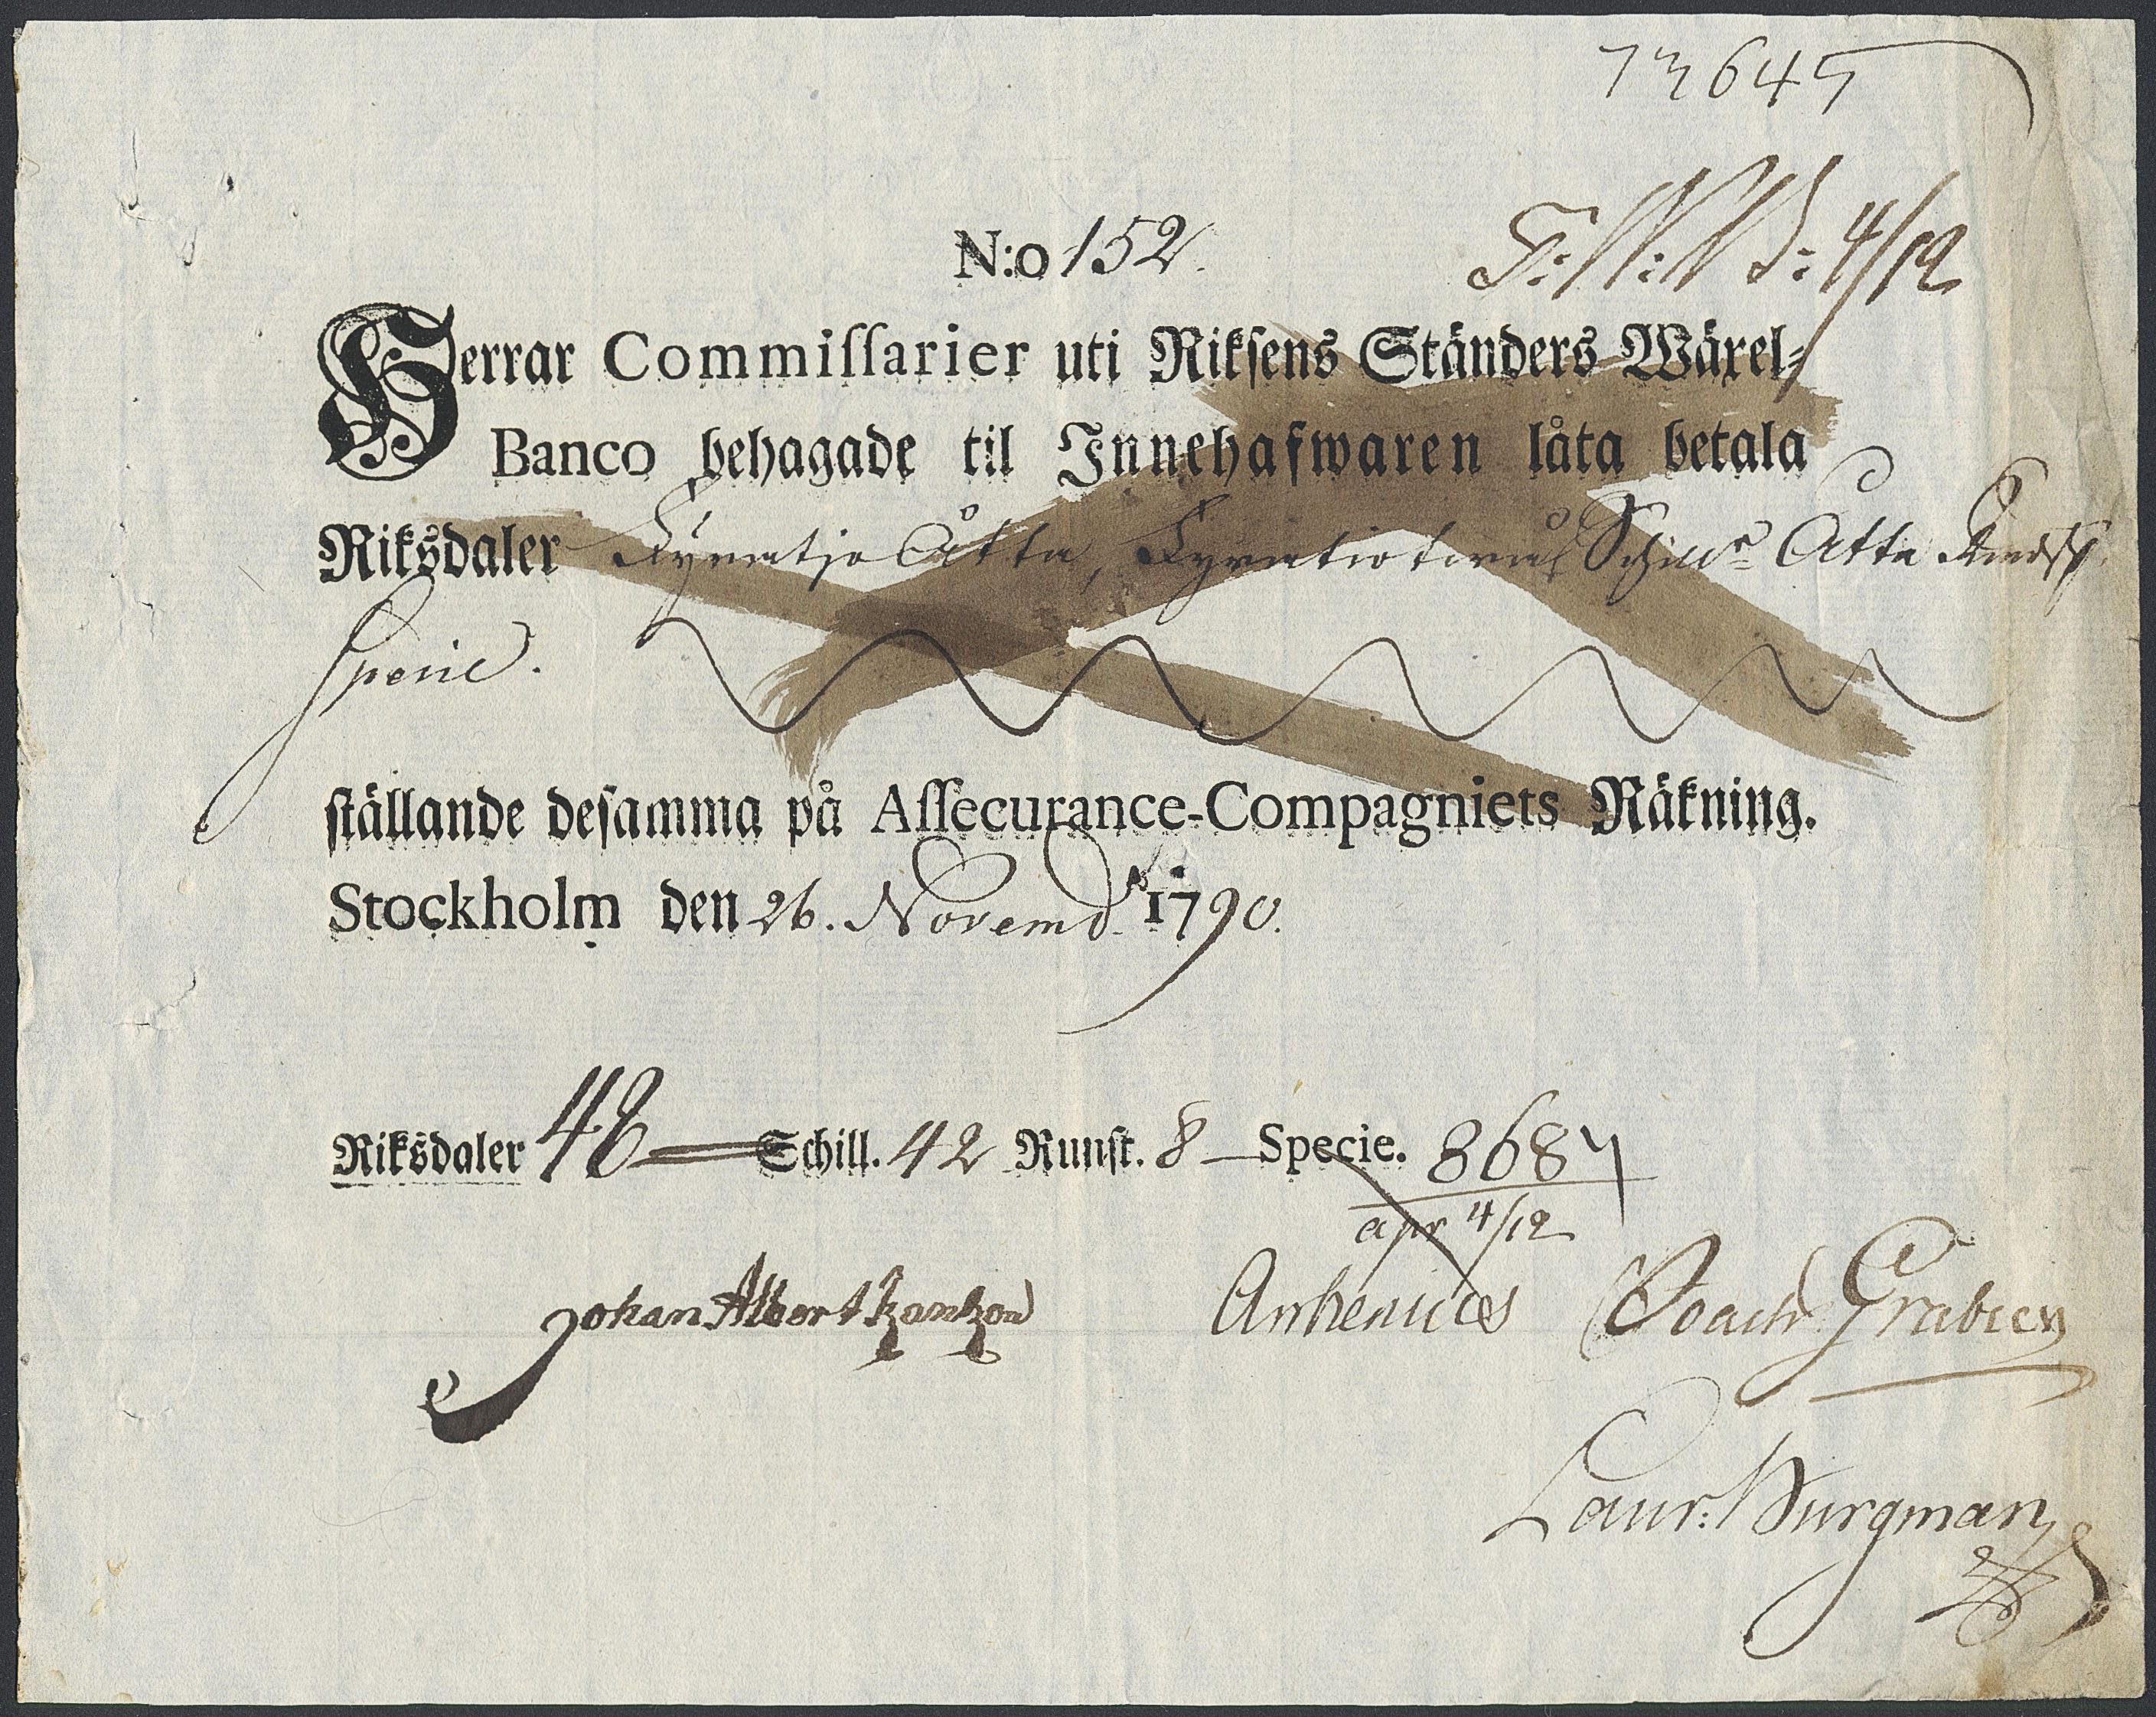 73645
N:o 152.
4/12
Herrar Commiſſarier uti Rikſens Ständers Wäxel-
Banco behagade til Innehafwaren låta betala
Riksdaler Fyratjo Åtta, Fyratiotwå Atta
Specie.
ſtällande deſamma på Aſſecurance-Compagniets Räkning.
Stockholm den 26. Novemb. 1790.
Riksdaler 48 Schill. 42 Runſt. 8 Specie. 8687
apr 4/12
Johan Albert Kantzou Arrhenius Joach Grabien
Laur: Burgman